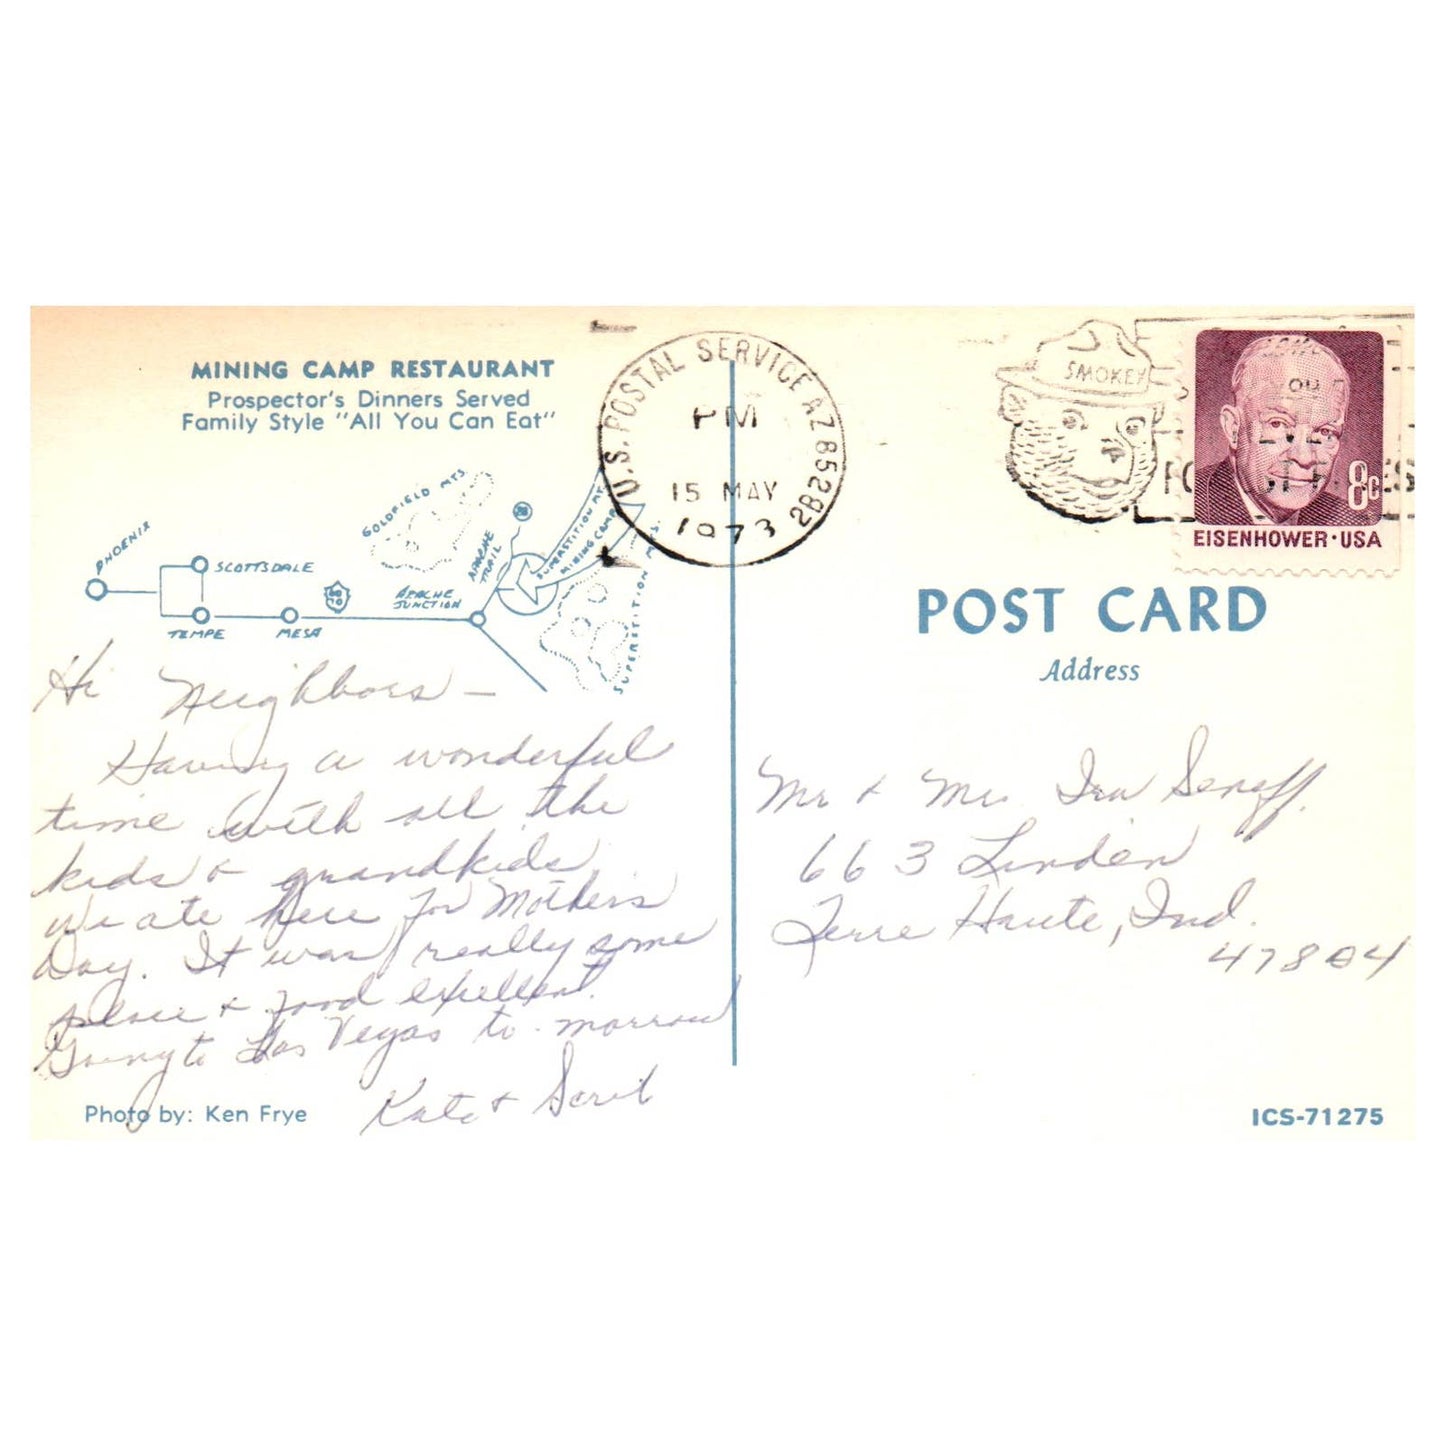 MINING CAMP RESTAURANT
Prospector's Dinners Served
Family Style "All You Can Eat"
PHOENIX
SCOTTSDALE
TEMPE
MESA
60
70
GOLDFIELD MTS.
APACHE
JUNCTION
APACHE
TRAIL
88
SUPERSTITION MT.
MINING CAMP
SUPERSTITION MTS.
Hi Neighbors —
Having a wonderful
time with all the
kids & grandkids
We ate here for Mother's
Day. It was really some
place & food excellent.
Going to Las Vegas to-morrow
Kate &
Photo by: Ken Frye
U.S. POSTAL SERVICE AZ 85282
PM
15 MAY
1973
SMOKEY
8c
EISENHOWER · USA
POST CARD
Address
Mr & Mrs Ira Seneff.
663 Linden
Terre Haute, Ind.
47804
ICS-71275